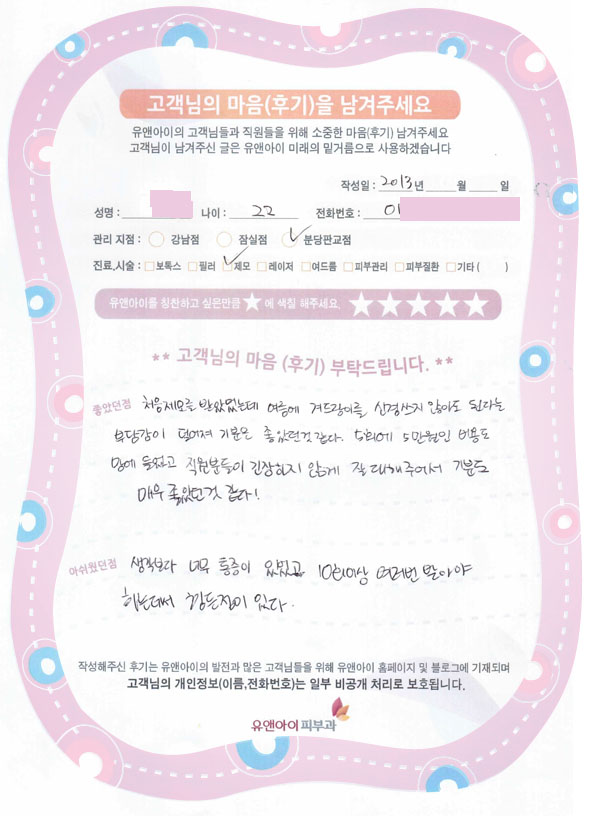 고객님의 마음(후기)을 남겨주세요
유앤아이의 고객님들과 직원들을 위해 소중한 마음(후기) 남겨주세요
고객님이 남겨주신 글은 유앤아이 미래의 밑거름으로 사용하겠습니다
작성일 : 2013년 월 일
성명 : 나이 : 22 전화번호 : 01
관리 지점 : 강남점 잠실점 분당판교점
진료,시술 : 보톡스 필러 제모 레이저 여드름 피부관리 피부질환 기타 ( )
유앤아이를 칭찬하고 싶은만큼 ★ 에 색칠 해주세요. ★★★★★
** 고객님의 마음 (후기) 부탁드립니다. **
좋았던점 처음제모를 받았었는데 여름에 겨드랑이를 신경쓰지 않아도 된다는
부담감이 덜어져 기분은 좋았던것 같다. 5회에 5만원인 비용도
맘에 들었고 직원분들이 긴장하지 않게 잘 대해주어서 기분도
매우 좋았던것 같다!
아쉬웠던점 생각보다 너무 통증이 있었고 10회이상 여러번 받아야
하는데서 힘든점이 있다.
작성해주신 후기는 유앤아이의 발전과 많은 고객님들을 위해 유앤아이 홈페이지 및 블로그에 기재되며
고객님의 개인정보(이름,전화번호)는 일부 비공개 처리로 보호됩니다.
유앤아이피부과